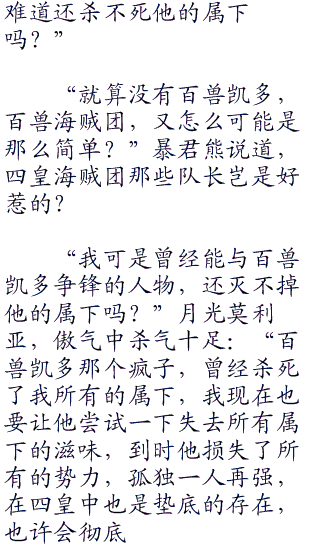 难道还杀不死他的属下
吗？”
“就算没有百兽凯多，
百兽海贼团，又怎么可能是
那么简单？”暴君熊说道，
四皇海贼团那些队长岂是好
惹的？
“我可是曾经能与百兽
凯多争锋的人物，还灭不掉
他的属下吗？”月光莫利
亚，傲气中杀气十足：“百
兽凯多那个疯子，曾经杀死
了我所有的属下，我现在也
要让他尝试一下失去所有属
下的滋味，到时他损失了所
有的势力，孤独一人再强，
在四皇中也是垫底的存在，
也许会彻底